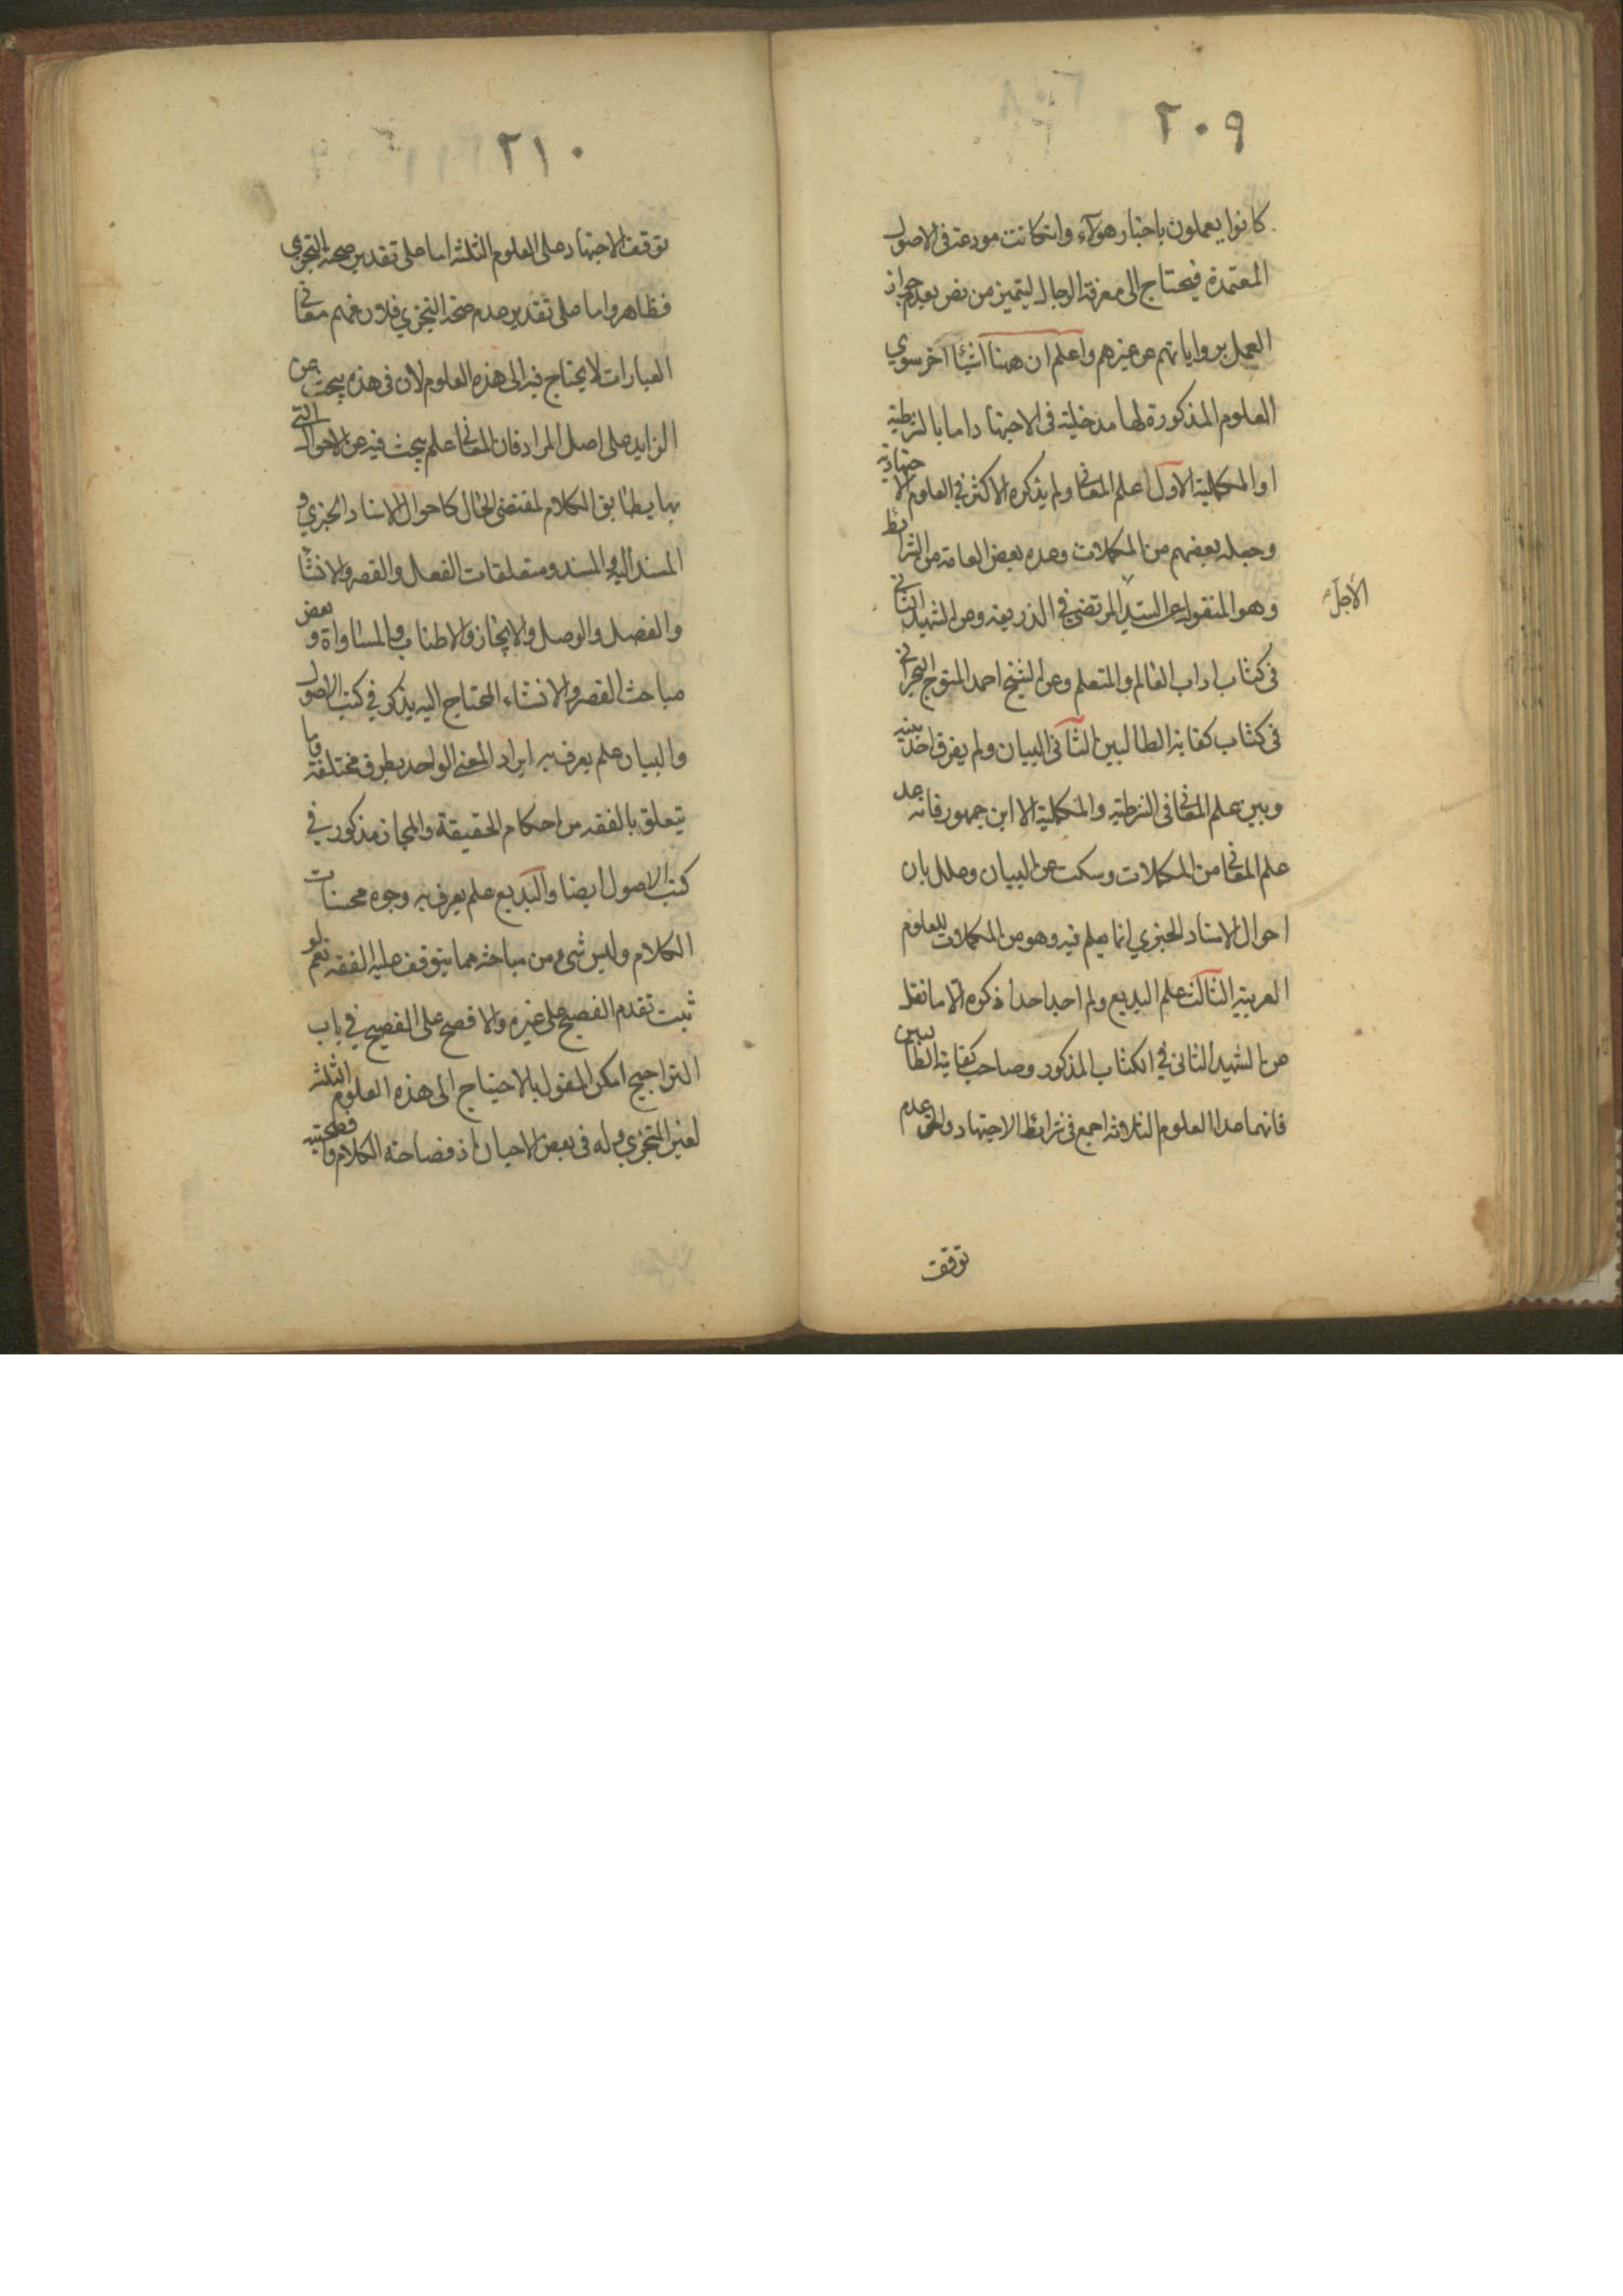 ٢٠٩
كانوا يعملون باخبار هؤلاء وان كانت مودعة فى الاصول
المعتمدة فيحتاج الى معرفة الرجال ليتميز من نص بعدم جواز
العمل برواياتهم عن غيرهم واعلم ان ههنا اشياء اخر سوي
العلوم المذكورة لها مدخلية فى الاجتهاد اما بالشرطية
او المكملية الاول علم المعانى ولم يذكره الاكثر في العلوم الاجتهادية
وجعله بعضهم من المكملات وعده بعض العامة من الشرائط
وهو المنقول عن السيد المرتضى في الذريعه وعن الشهيد الثاني
الأجل
فى كتاب اداب العالم والمتعلم وعن الشيخ احمد المتوج البحراني
فى كتاب كفاية الطالبين الثانى البيان ولم يفرق احد بينه
وبين علم المعانى فى الشرطيه والمكملية الا ابن جمهور فانه عد
علم المعانى من المكملات وسكت عن البيان وعلل بان
احوال الاسناد الخبري انما يعلم فيه وهو من المكملات للعلوم
العربية الثالث علم البديع ولم اجد احدا ذكره الا ما نقل
عن الشهيد الثانى في الكتاب المذكور وصاحب كفاية الطالبين
فانهما عدا العلوم الثلاثه اجمع فى شرائط الاجتهاد والحق عدم
توقف
٢١٠
توقف الاجتهاد على العلوم الثلثه اما على تقدير صحة التجزي
فظاهر واما على تقدير عدم صحة التجزي فلان فهم معاني
العبارات لا يحتاج فيه الى هذه العلوم لان فى هذه يبحث عن
الزايد على اصل المراد فان المعانى علم يبحث فيه عن الاحوال التي
بها يطابق الكلام لمقتضى الحال كاحوال الاسناد الخبري و
المسند اليه والمسند ومتعلقات الفعل والقصر والانشاء
والفصل والوصل والايجاز والاطناب والمساواة و بعض
مباحث القصر والانشاء المحتاج اليه يذكر في كتب الاصول
والبيان علم يعرف به ايراد المعنى الواحد بطرق مختلفة وما
يتعلق بالفقه من احكام الحقيقة والمجاز مذكور في
كتب الاصول ايضا والبديع علم يعرف به وجوه محسنات
الكلام وليس شيء من مباحثه مما يتوقف عليه الفقه نعم لو
ثبت تقدم الفصيح على غيره والافصح على الفصيح في باب
التراجيح امكن القول بالاحتياج الى هذه العلوم الثلثه
لغير المتجزي وله فى بعض الاحيان اذ فصاحة الكلام